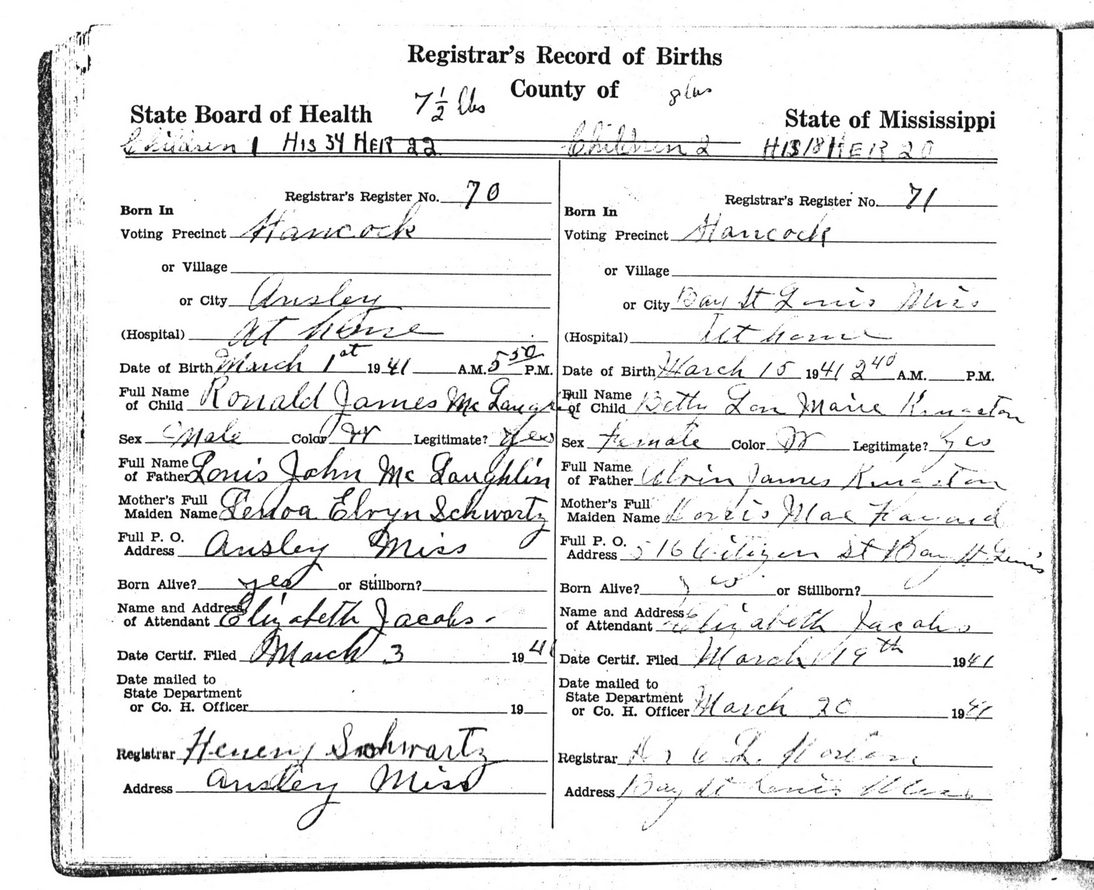 Registrar's Record of Births
County of
State Board of Health
7½ lbs
8 lbs
State of Mississippi
Children 1 HIS 34 HER 22
Children 2 HIS 18 HER 20
Registrar's Register No. 70
Born In
Voting Precinct Hancock
or Village
or City Ansley
(Hospital) At home
Date of Birth March 1st 1941 A.M. 5 50 P.M.
Full Name
of Child Ronald James McLaughlin
Sex Male Color W Legitimate? Yes
Full Name
of Father Louis John McLaughlin
Mother's Full
Maiden Name Lenoa Elvyn Schwartz
Full P. O.
Address Ansley Miss
Born Alive? yes or Stillborn?
Name and Address
of Attendant Elizabeth Jacobs
Date Certif. Filed March 3 1941
Date mailed to
State Department
or Co. H. Officer 19
Registrar Henery Schwartz
Address Ansley Miss
Registrar's Register No. 71
Born In
Voting Precinct Hancock
or Village
or City Bay St Louis Miss
(Hospital) At home
Date of Birth March 15 1941 2 40 A.M. P.M.
Full Name
of Child Betty Lou Marie Kingston
Sex Female Color W Legitimate? Yes
Full Name
of Father Alvin James Kingston
Mother's Full
Maiden Name Norris Mae Favard
Full P. O.
Address 516 Citizen St Bay St Louis
Born Alive? yes or Stillborn?
Name and Address
of Attendant Elizabeth Jacobs
Date Certif. Filed March 19th 1941
Date mailed to
State Department
or Co. H. Officer March 20 1941
Registrar
Address Bay St Louis Miss